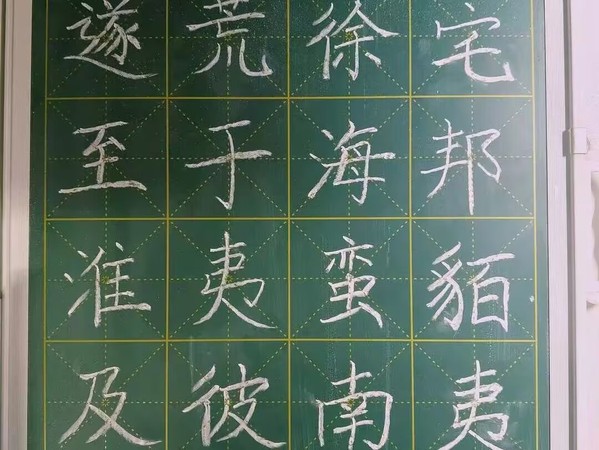 遂荒徐宅
至于海邦
淮夷蛮貊
及彼南夷